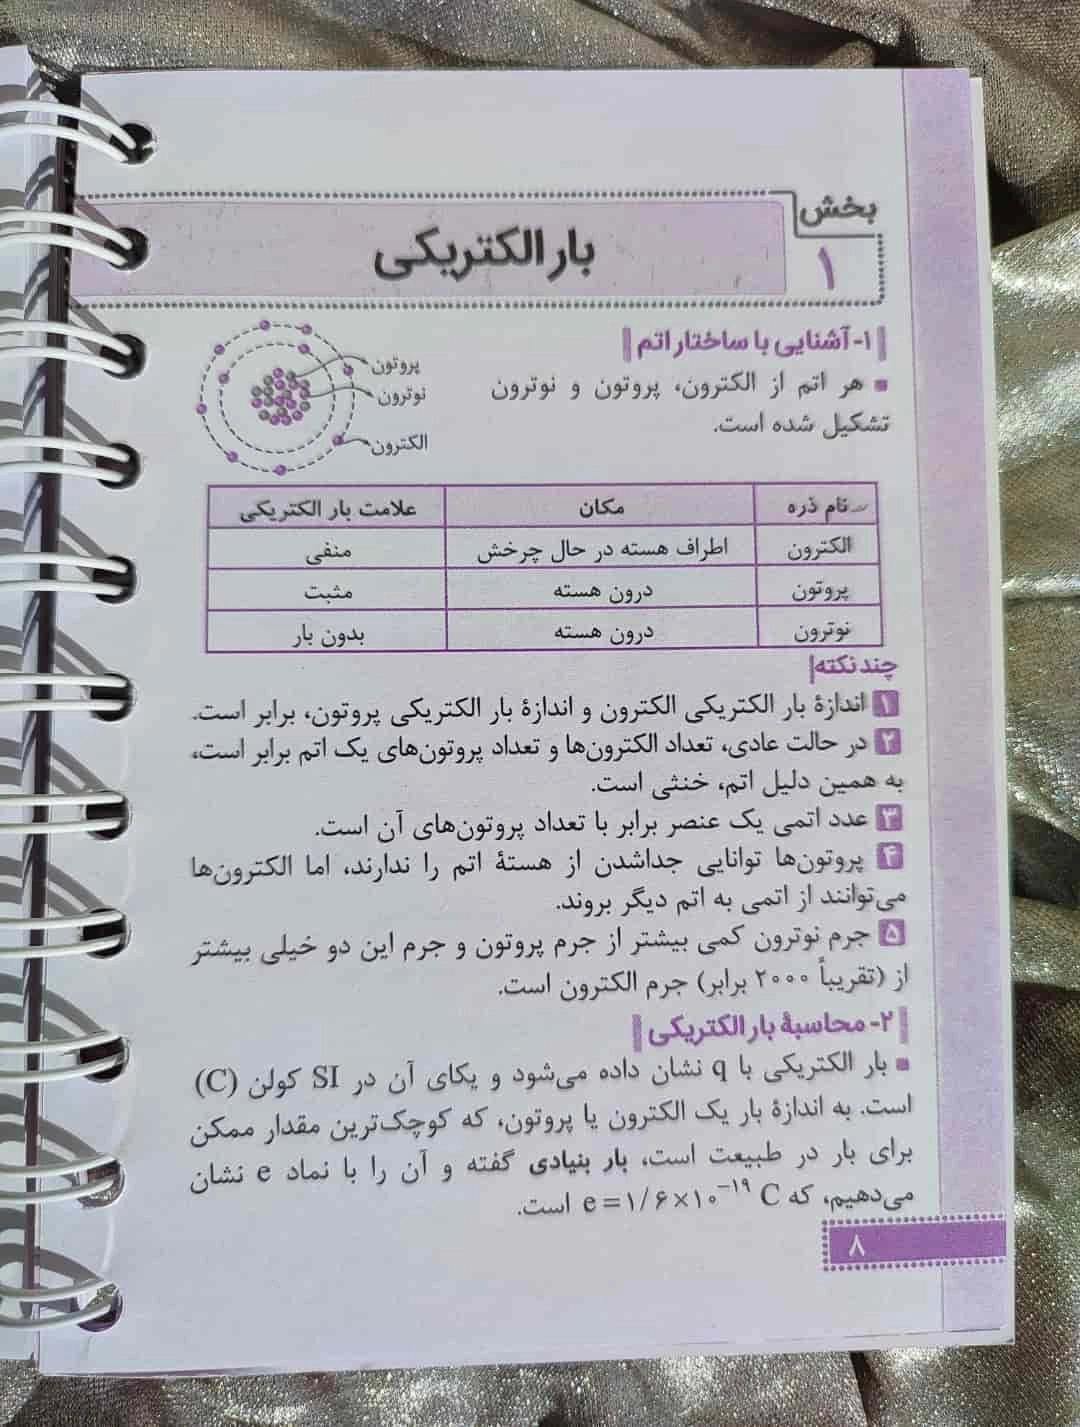 بخش
۱
بار الکتریکی
۱- آشنایی با ساختار اتم
هر اتم از الکترون، پروتون و نوترون
تشکیل شده است.
پروتون
نوترون
الکترون
نام ذره مکان علامت بار الکتریکی
الکترون اطراف هسته در حال چرخش منفی
پروتون درون هسته مثبت
نوترون درون هسته بدون بار
چند نکته
۱ اندازهٔ بار الکتریکی الکترون و اندازهٔ بار الکتریکی پروتون، برابر است.
۲ در حالت عادی، تعداد الکترون‌ها و تعداد پروتون‌های یک اتم برابر است،
به همین دلیل اتم، خنثی است.
۳ عدد اتمی یک عنصر برابر با تعداد پروتون‌های آن است.
۴ پروتون‌ها توانایی جداشدن از هستهٔ اتم را ندارند، اما الکترون‌ها
می‌توانند از اتمی به اتم دیگر بروند.
۵ جرم نوترون کمی بیشتر از جرم پروتون و جرم این دو خیلی بیشتر
از (تقریباً ۲۰۰۰ برابر) جرم الکترون است.
۲- محاسبهٔ بار الکتریکی
بار الکتریکی با q نشان داده می‌شود و یکای آن در SI کولن (C)
است. به اندازهٔ بار یک الکترون یا پروتون، که کوچک‌ترین مقدار ممکن
برای بار در طبیعت است، بار بنیادی گفته و آن را با نماد e نشان
می‌دهیم، که e=۱/۶×۱۰⁻¹⁹ C است.
۸